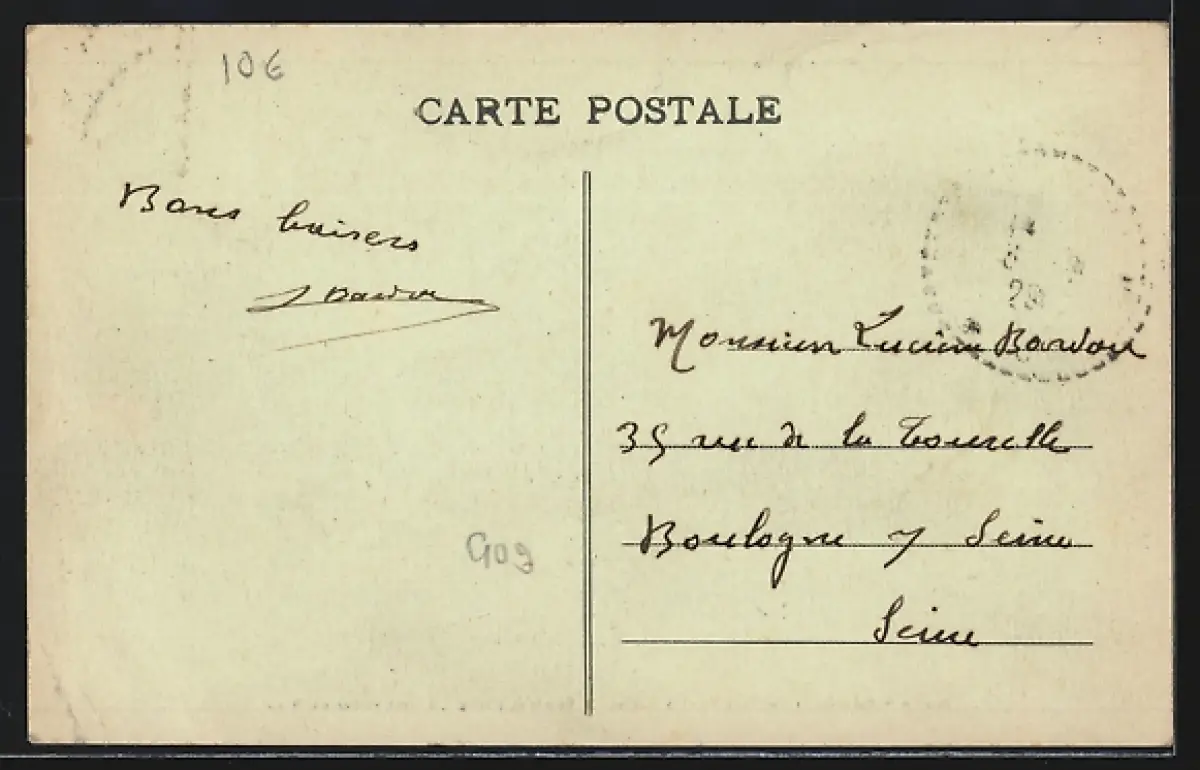 10€
CARTE POSTALE
Bons baisers
Bardon
Monsieur Lucien Bardon
35 rue de la Tourelle
Boulogne s/ Seine
Seine
G09